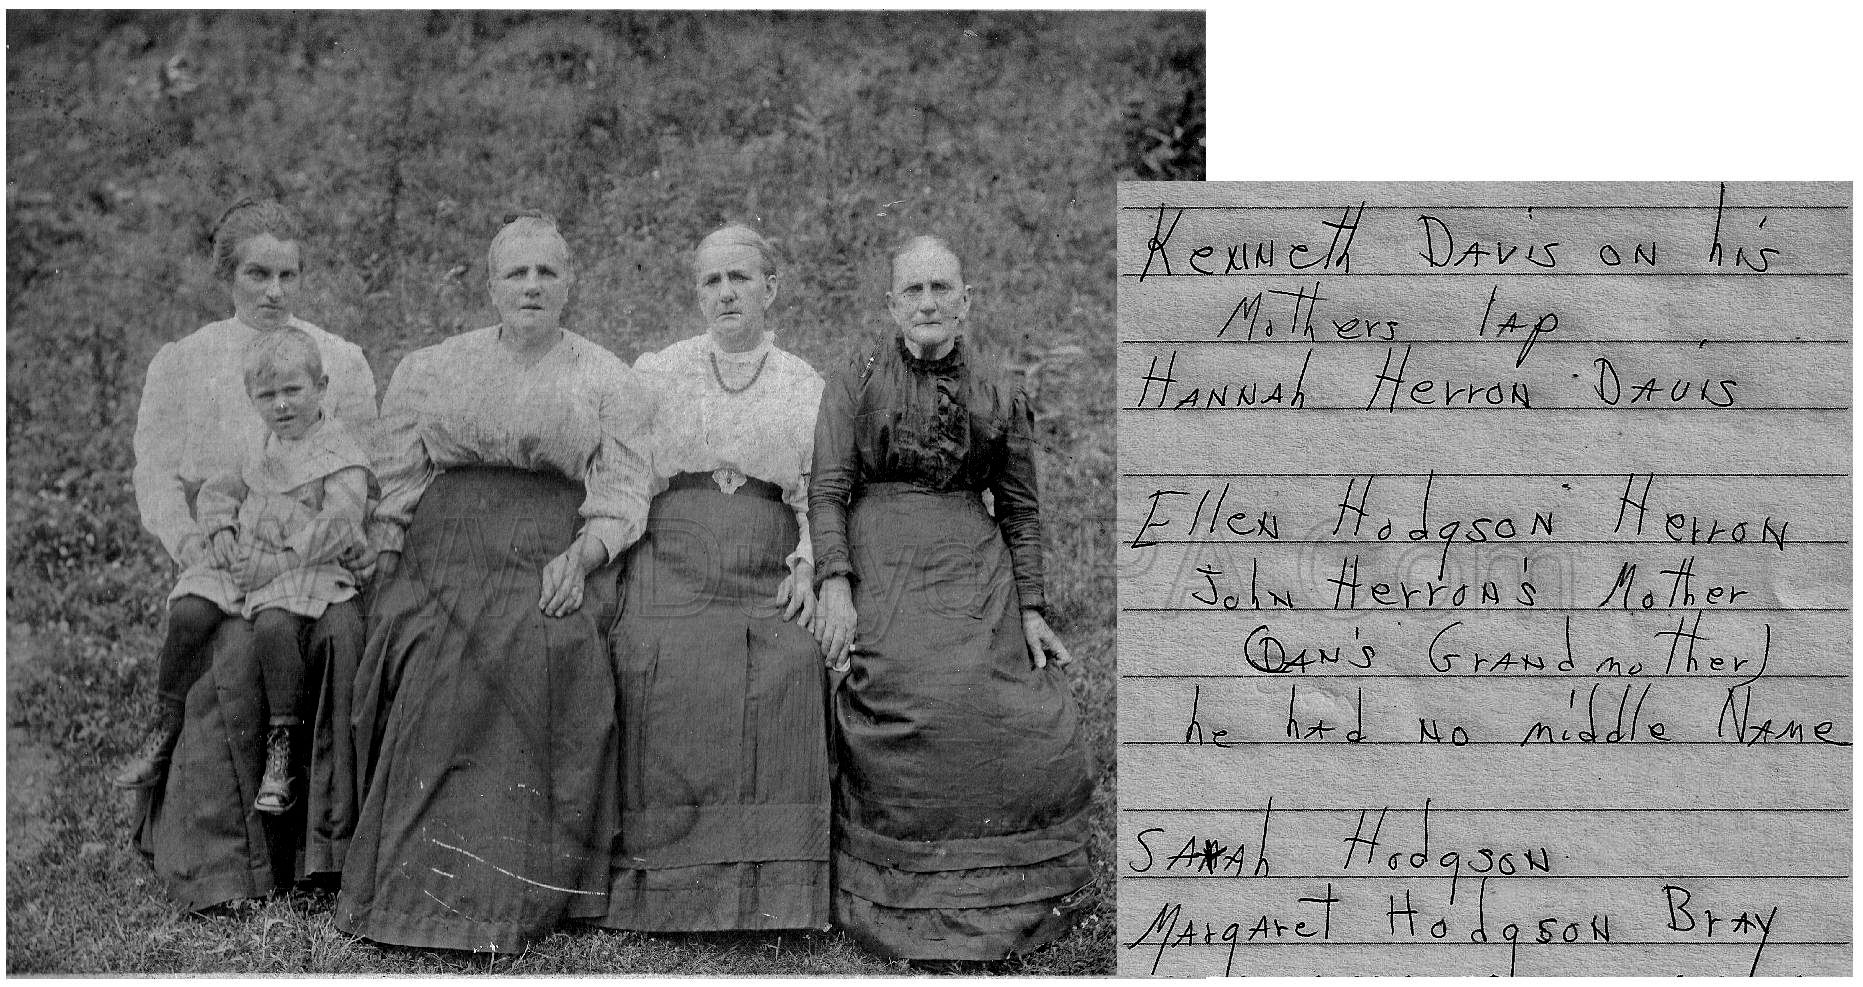 Kenneth Davis on his
Mothers lap
Hannah Herron Davis
Ellen Hodgson Herron
John Herron's Mother
(Dan's Grandmother)
he had no middle Name
Sarah Hodgson
Margaret Hodgson Bray